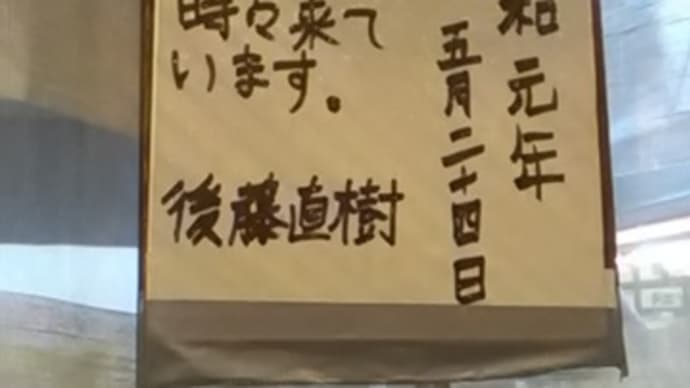 和元年
五月二十四日
時々来て
います。
後藤直樹